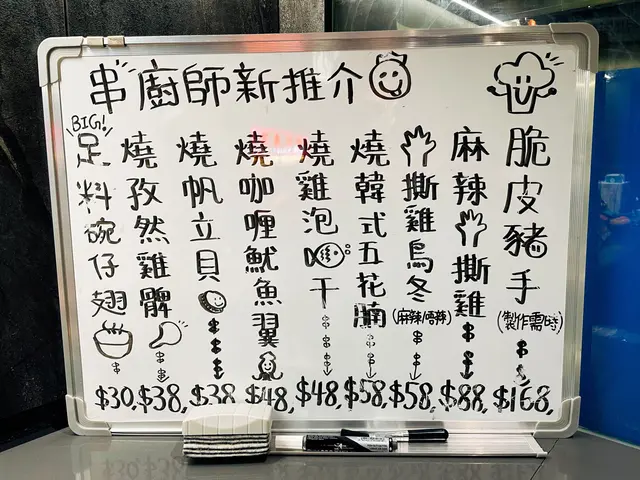 串廚師新推介
脆皮豬手(製作需時) $168,
麻辣手撕雞 $88,
撕雞烏冬(麻辣/唔辣) $58,
燒韓式五花腩 $58,
燒雞泡干 $48,
燒咖喱魷魚翼 $48,
燒帆立貝 $38,
燒孜然雞髀 $38,
BIG!
足料碗仔翅 $30,